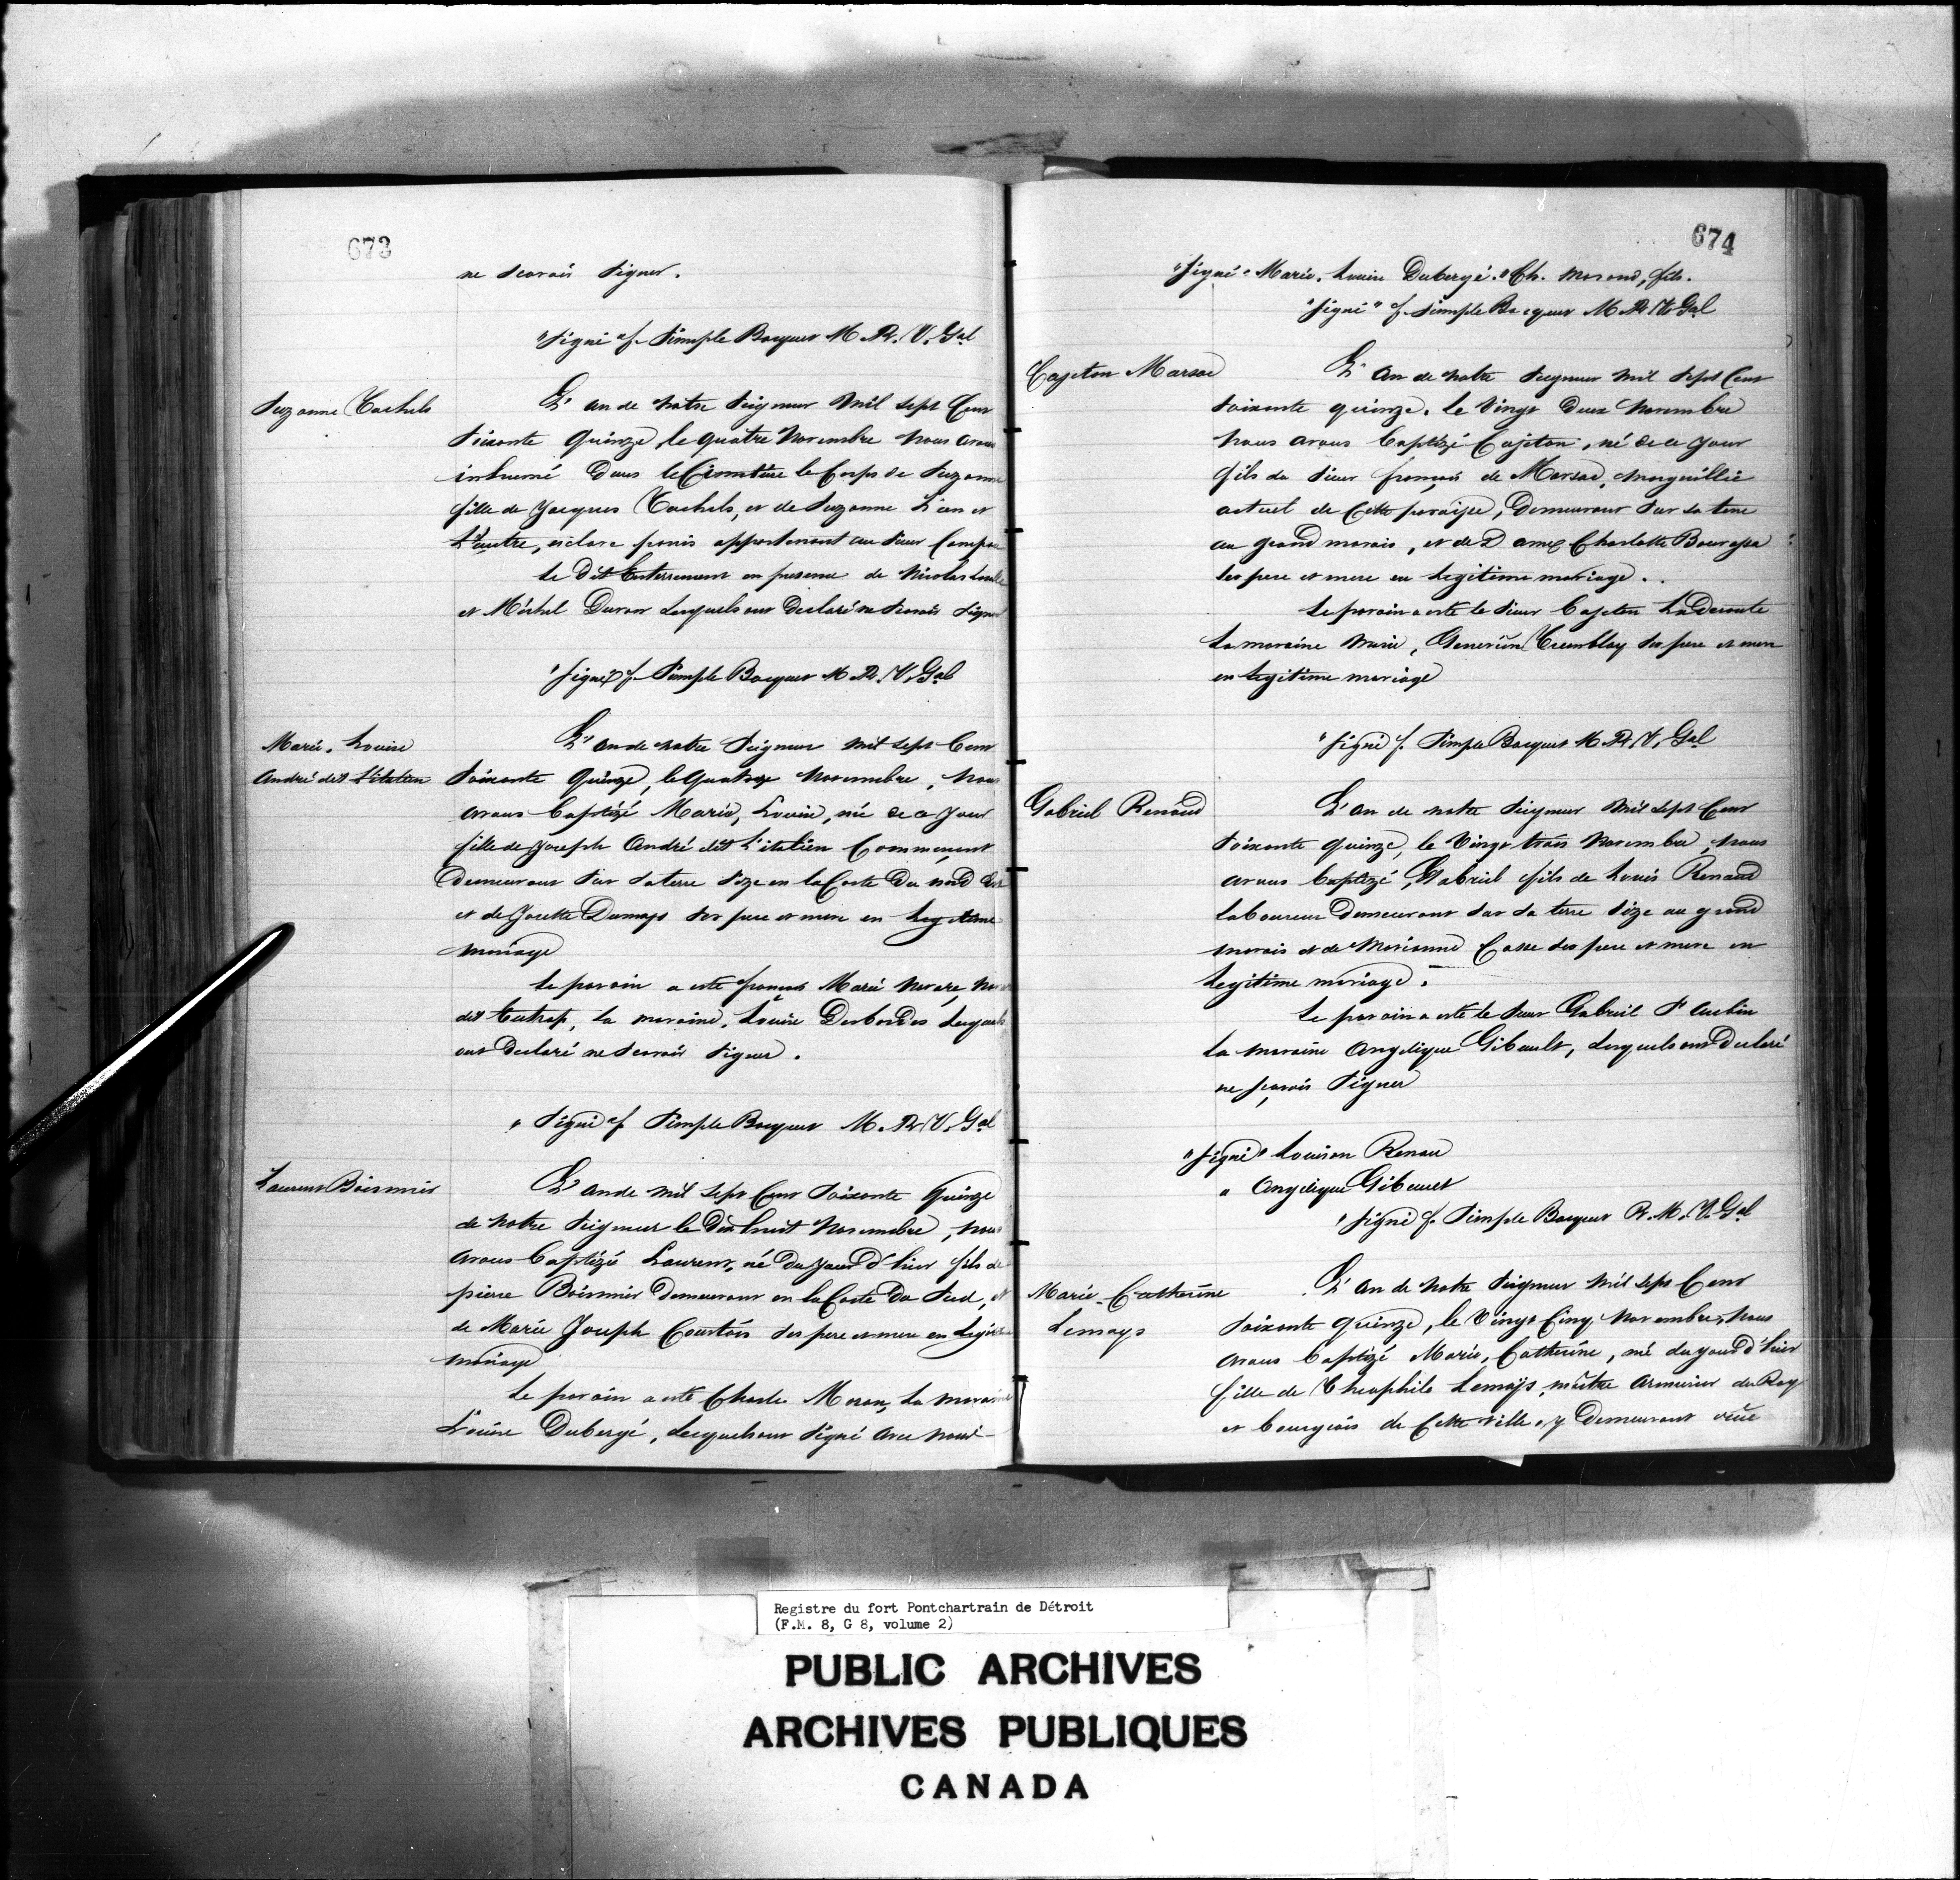 673
ne scavoir signer.
"Signé" f. Simple Bocquet M. Pr. V. Gal
Suzanne Cachels
L'an de notre Seigneur mil sept Cent
soixante quinze, le quatre novembre nous avons
inhumé dans le Cimetière le Corps de Suzanne
fille de Jacques Cachels, et de Suzanne L'un et
L'autre, esclave panis appartenant au Sieur Campau
Le dit Enterrement en presence de Nicolas
et Michel Duron lesquels ont declaré ne scavoir signer
"Signé" f. Simple Bocquet M. Pr. V. Gal
Marie, Louise
André dit L'italien
L'an de notre Seigneur mil sept Cent
soixante quinze, le quatorze novembre, nous
avons baptizé Marie, Louise, né de ce jour
fille de Joseph André dit L'italien Commerçant
Demeurant sur sa terre size en la Coste du nord Est
et de Josette Dumays ses pere et mere en Legitime
mariage
Le parain a esté francois Marie
dit la maraine, Louise Desbordes lesquels
ont declaré ne scavoir signer.
"Signé" f. Simple Bocquet M. Pr. V. Gal
Laurent Boismier
L'an de mil sept Cent soixante quinze
de notre Seigneur le Dix huit novembre, nous
avons baptizé Laurent, né du jour d'hier fils de
pierre Boismier demeurant en la Coste du Sud, et
de Marie Joseph Courtois ses pere et mere en Legitime
mariage
Le parain a esté Charle Moran, La maraine
Louise Dubergé, lesquels ont signé avec nous
674
"Signé" Marie, Louise Dubergé. "Ch. Morand, fils.
"Signé" f. Simple Bocquet M. Pr. V. Gal
Cajetan Marsac
L'an de notre Seigneur mil sept Cent
soixante quinze. le vingt deux novembre
nous avons baptizé Cajetan, né de ce jour
fils du Sieur françois de Marsac, marguillié
actuel de Cette paroisse, Demeurant sur sa terre
au grand marais, et de Dame Charlotte Bourassa
ses pere et mere en Legitime mariage.
Le parain a esté le Sieur Cajetan LaDeroute
La maraine Marie, Tremblay ses pere et mere
en Legitime mariage
"Signé" f. Simple Bocquet M. Pr. V. Gal
Gabriel Renaud
L'an de notre Seigneur mil sept Cent
soixante quinze, le vingt trois novembre, nous
avons baptizé Gabriel fils de Louis Renaud
laboureur Demeurant sur sa terre size au grand
marais et de Marianne Casse ses pere et mere en
Legitime mariage.
Le parain a esté le Sieur Gabriel St Aubin
La maraine Angelique Gibault, lesquels ont declaré
ne savoir signer
"Signé" Louison Renau
" Angelique Gibault
"Signé" f. Simple Bocquet P. M. V. Gal
Marie-Catherine
Lemays
L'an de notre Seigneur mil sept Cent
soixante quinze, le vingt Cinq novembre, nous
avons baptizé Marie, Catherine, né du jour d'hier
fille de Theophile Lemays, maître armurier du Roy
et bourgeois de Cette ville, y Demeurant rüe
Registre du fort Pontchartrain de Détroit
(F.M. 8, G 8, volume 2)
PUBLIC ARCHIVES
ARCHIVES PUBLIQUES
CANADA